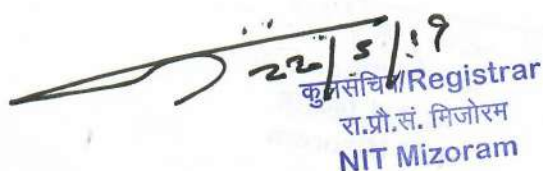 22/5/19
कुलसचिव/Registrar
रा.प्रौ.सं. मिजोरम
NIT Mizoram